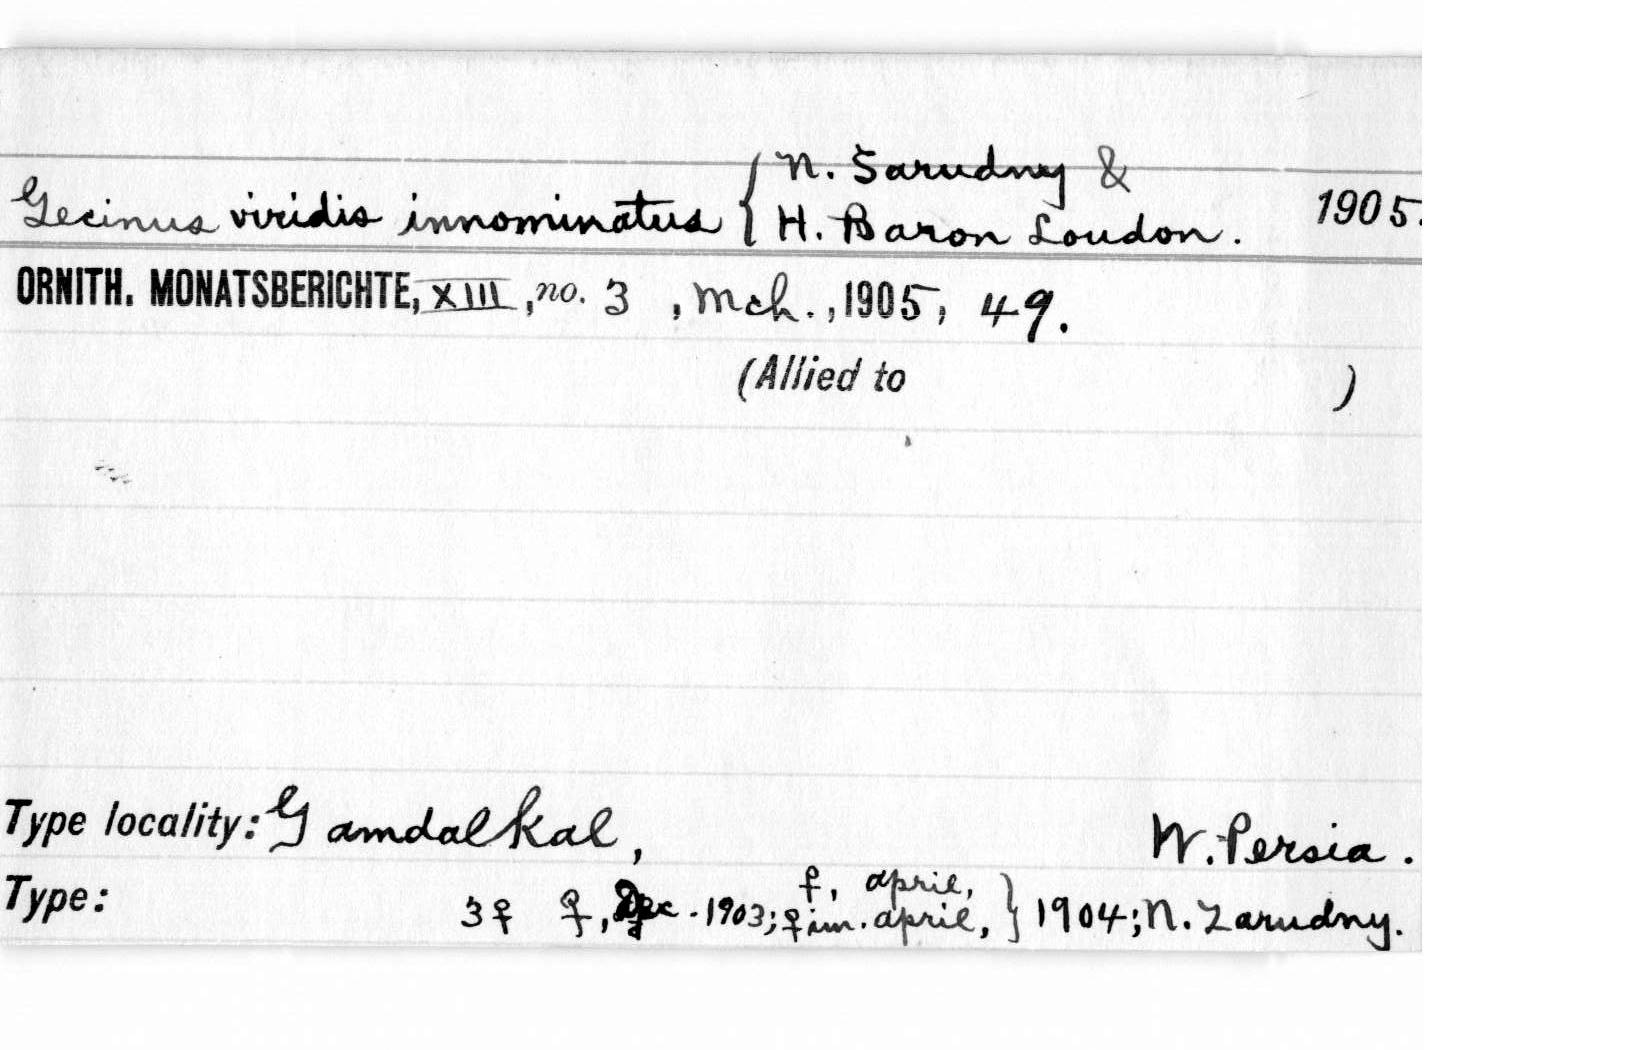 Gecinus viridis innominatus { N. Sarudny &
H. Baron Loudon. 1905.
ORNITH. MONATSBERICHTE, XIII, no. 3, Mch., 1905, 49.
(Allied to )
Type locality: Gamdalkal, W. Persia.
♀, april,
Type: 3♀ ♀, Dec. 1903; ♀ im. april, } 1904; N. Zarudny.